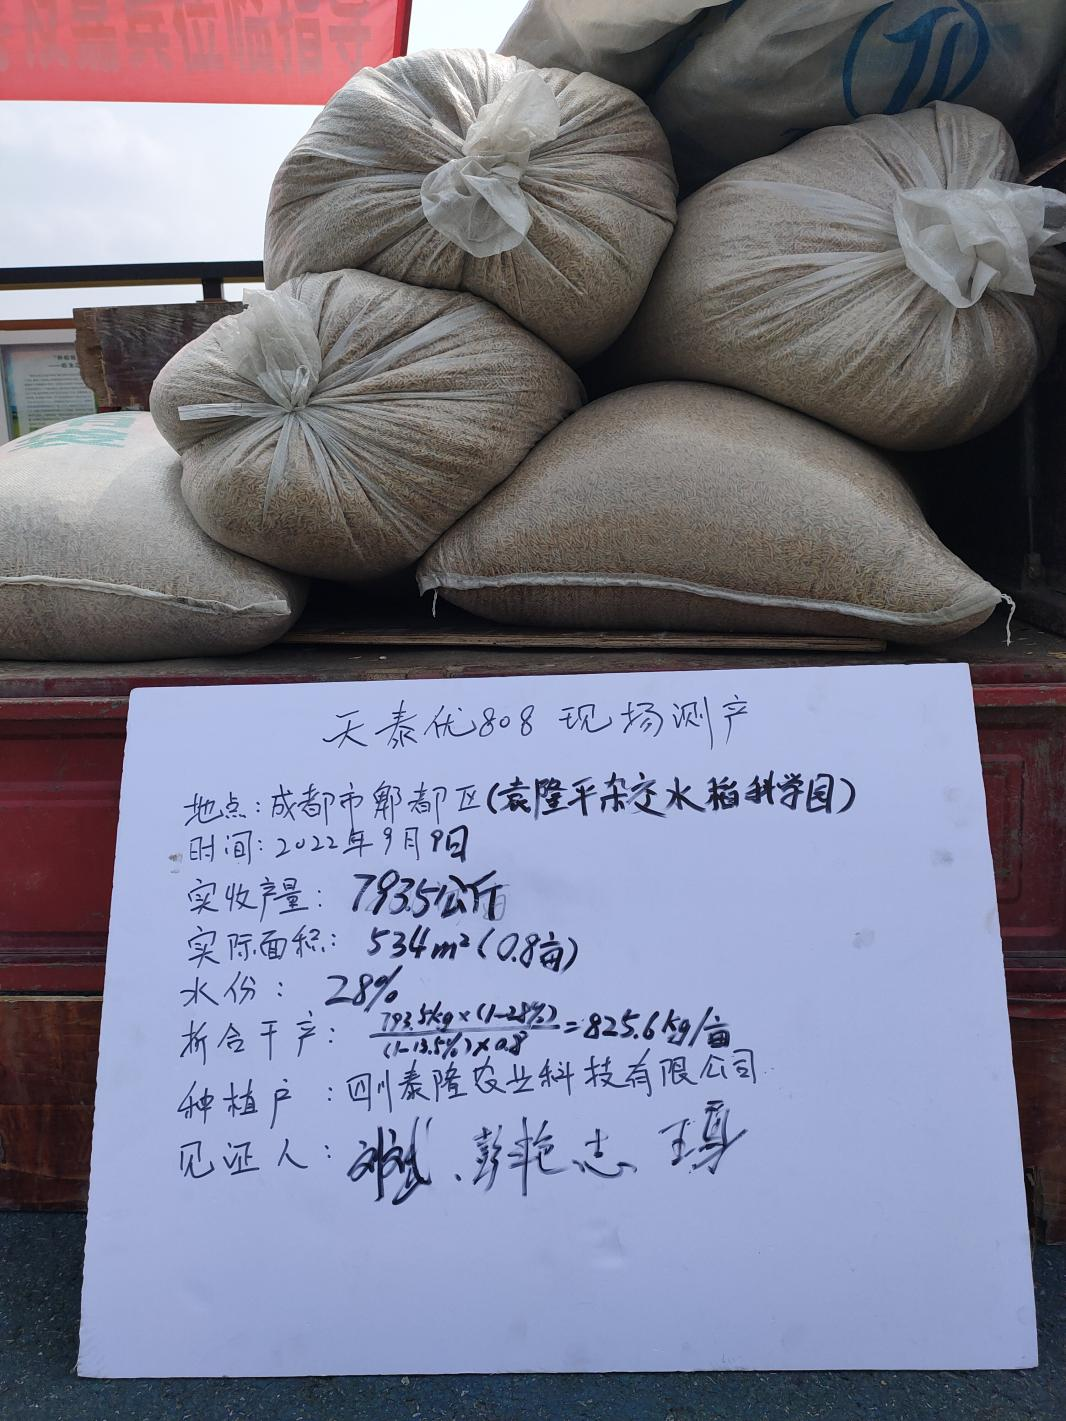 嘉宾位临指导
天泰优808 现场测产
地点:成都市郫都区(袁隆平杂交水稻科学园)
时间:2022年9月9日
实收产量:793.5公斤
实际面积:534m²(0.8亩)
水份:28%
折合干产:793.5kg×(1-28%)/(1-13.5%)×0.8=825.6kg/亩
种植户:四川泰隆农业科技有限公司
见证人:刘斌、彭艳志 王勇